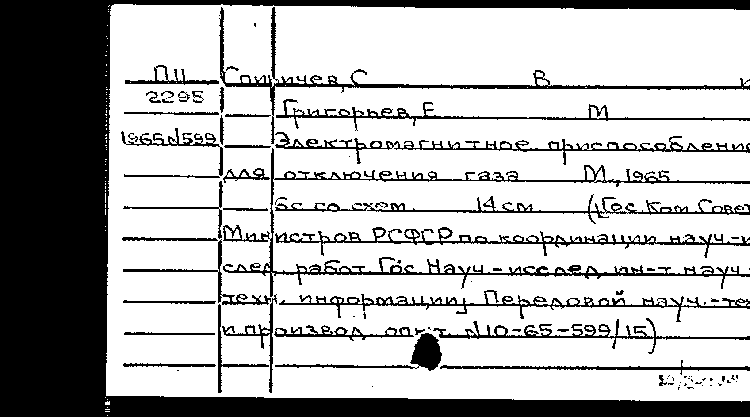 П11 С В
2295 Григорьев, Е М
1965 N599 Электромагнитное приспособление
для отключения газа М., 1965
6с со схем. 14см (Гос Ком Совет
Министров РСФСР по координации науч.-и
след. работ Гос Науч-исслед ин-т науч
техн. информации, Передовой науч.-те
и производ. опыт N10-65-599/15)